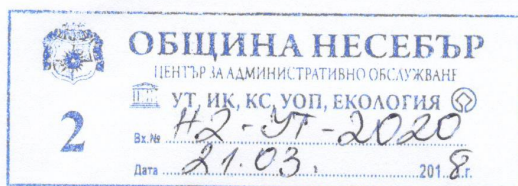 ОБЩИНА НЕСЕБЪР
ЦЕНТЪР ЗА АДМИНИСТРАТИВНО ОБСЛУЖВАНЕ
УТ, ИК, КС, УОП, ЕКОЛОГИЯ
2
Вх.№ Н2-УТ-2020
Дата 21.03. 2018.г.